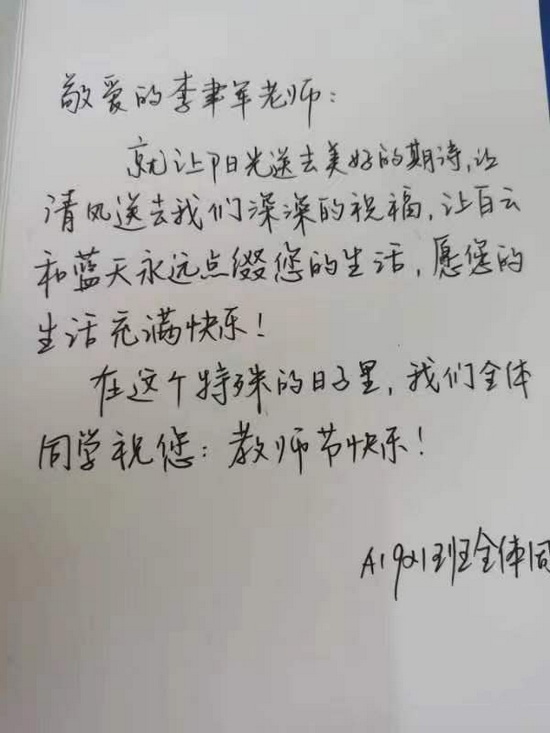 敬爱的李聿军老师：
就让阳光送去美好的期待,让
清风送去我们深深的祝福,让白云
和蓝天永远点缀您的生活,愿您的
生活充满快乐!
在这个特殊的日子里,我们全体
同学祝您:教师节快乐!
班全体同